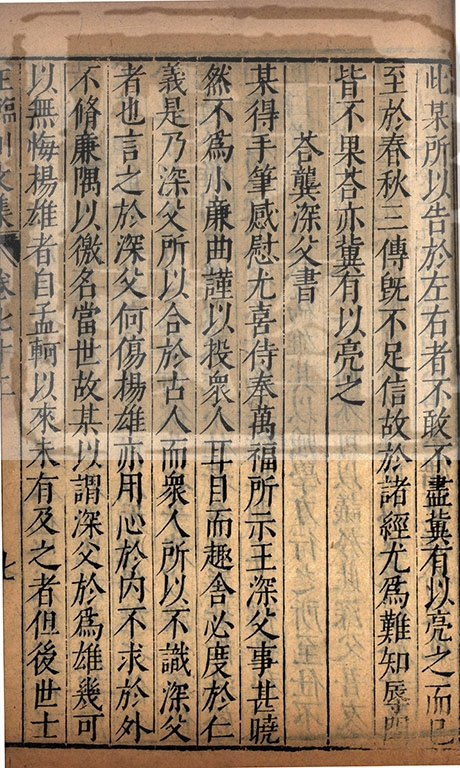 此某所以告於左右者不敢不盡冀有以亮之而已
至於春秋三傳旣不足信故於諸經尤爲難知辱問
皆不果荅亦冀有以亮之
荅龔深父書
某得手筆感慰尤喜侍奉萬福所示王深父事甚曉
然不爲小廉曲謹以投衆人耳目而趣舍必度於仁
義是乃深父所以合於古人而衆人所以不識深父
者也言之於深父何傷揚雄亦用心於内不求於外
不脩廉隅以徼名當世故某以謂深父於爲雄幾可
以無悔楊雄者自孟軻以來未有及之者但後世士
王臨川文集 卷七十二 七